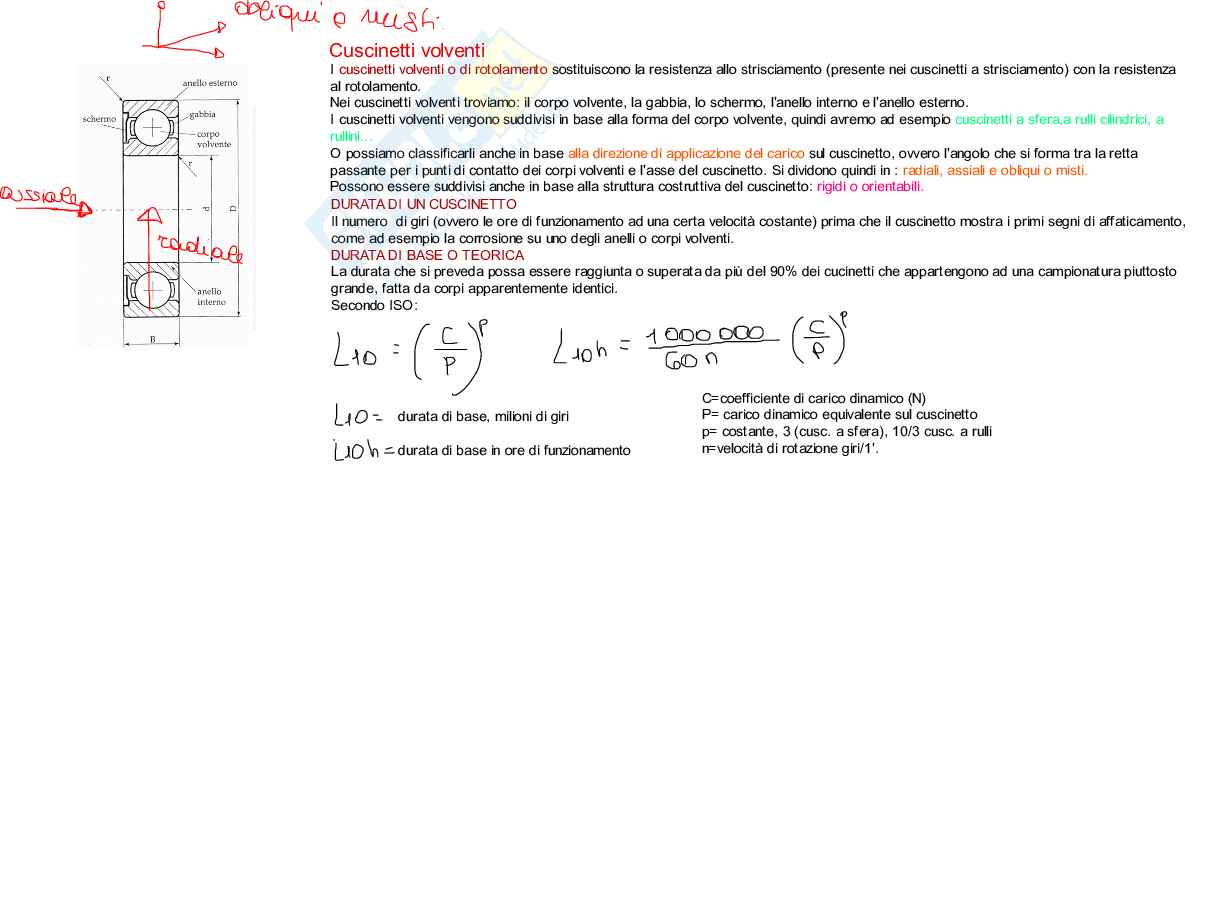 obliqui e misti.
Cuscinetti volventi
I cuscinetti volventi o di rotolamento sostituiscono la resistenza allo strisciamento (presente nei cuscinetti a strisciamento) con la resistenza
al rotolamento.
Nei cuscinetti volventi troviamo: il corpo volvente, la gabbia, lo schermo, l'anello interno e l'anello esterno.
I cuscinetti volventi vengono suddivisi in base alla forma del corpo volvente, quindi avremo ad esempio cuscinetti a sfera,a rulli cilindrici, a
rullini...
O possiamo classificarli anche in base alla direzione di applicazione del carico sul cuscinetto, ovvero l'angolo che si forma tra la retta
passante per i punti di contatto dei corpi volventi e l'asse del cuscinetto. Si dividono quindi in : radiali, assiali e obliqui o misti.
Possono essere suddivisi anche in base alla struttura costruttiva del cuscinetto: rigidi o orientabili.
DURATA DI UN CUSCINETTO
Il numero di giri (ovvero le ore di funzionamento ad una certa velocità costante) prima che il cuscinetto mostra i primi segni di affaticamento,
come ad esempio la corrosione su uno degli anelli o corpi volventi.
DURATA DI BASE O TEORICA
La durata che si preveda possa essere raggiunta o superata da più del 90% dei cucinetti che appartengono ad una campionatura piuttosto
grande, fatta da corpi apparentemente identici.
Secondo ISO:
L10 = (C/P)^p
L10h = 1000000/60n (C/P)^p
L10 = durata di base, milioni di giri
L10h = durata di base in ore di funzionamento
C=coefficiente di carico dinamico (N)
P= carico dinamico equivalente sul cuscinetto
p= costante, 3 (cusc. a sfera), 10/3 cusc. a rulli
n=velocità di rotazione giri/1'.
r
anello esterno
schermo
gabbia
corpo
volvente
r
assiale
d
D
radiale
anello
interno
B